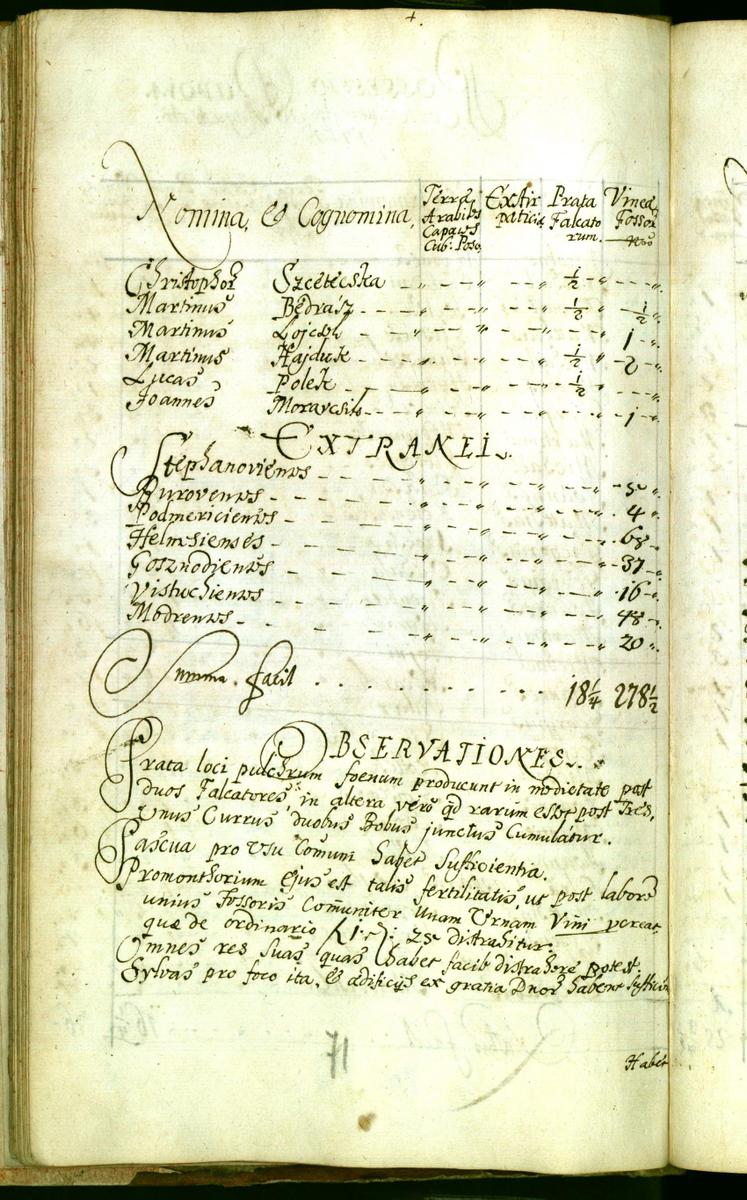 4.
Nomina, & Cognomina, Terræ Arabiles Capaces Cub: Poso. Extir patitiæ Prata Falcato rum. Vineæ Fossorũ
Christophor Szcetecska - " - - " - - ½ " - - - "
Martinus Bedrasz - - - " - - " - - - " ½ " - - ½ "
Martinus Lojcsl - - " - - " - - - " - - - " 1 - "
Martinus Hajduk - - - " - - " - - - " ½ " - 2 - "
Lucas Polek - - - " - - " - - - " ½ " - - - "
Joannes Moravcsik - - - " - - " - - - " - - - " - 1 - "
EXTRANEI.
Stephanovienses - - - - " - - " - - - " - - - " - 5 - "
Durovenses - - - - " - - " - - - " - - - " - 4 - "
Podmericienses - - - - " - - " - - - " - - - " - 68 - "
Helmesienses - - - - " - - " - - - " - - - " - 37 - "
Gosznodienses - - - - " - - " - - - " - - - " - 16 - "
Vistuchienses - - - - " - - " - - - " - - - " - 48 - "
Modrenses - - - - " - - " - - - " - - - " - 20 - "
Summa. facit . . . . . . . . . . 18¼ 278½
OBSERVATIONES.
Prata loci pulchrum foenum producunt in medietate post
duos Falcatores, in altera vero qd rarum esset post Tres,
Unus Currus duobus Bobus junctus Cumulatur.
Pascua pro Usu Comuni habet Sufficientia.
Promonthorium Ejus est talis fertilitatis, ut post labore
unius Fossoris Comuniter Unam Urnam Vini percat
quæ de ordinario 1: 25 distrahitur.
Omnes res suas quas habet facile distrahere potest.
Sylvas pro foco ita, & ædificijs ex gratia Dnor habent
17
Habet